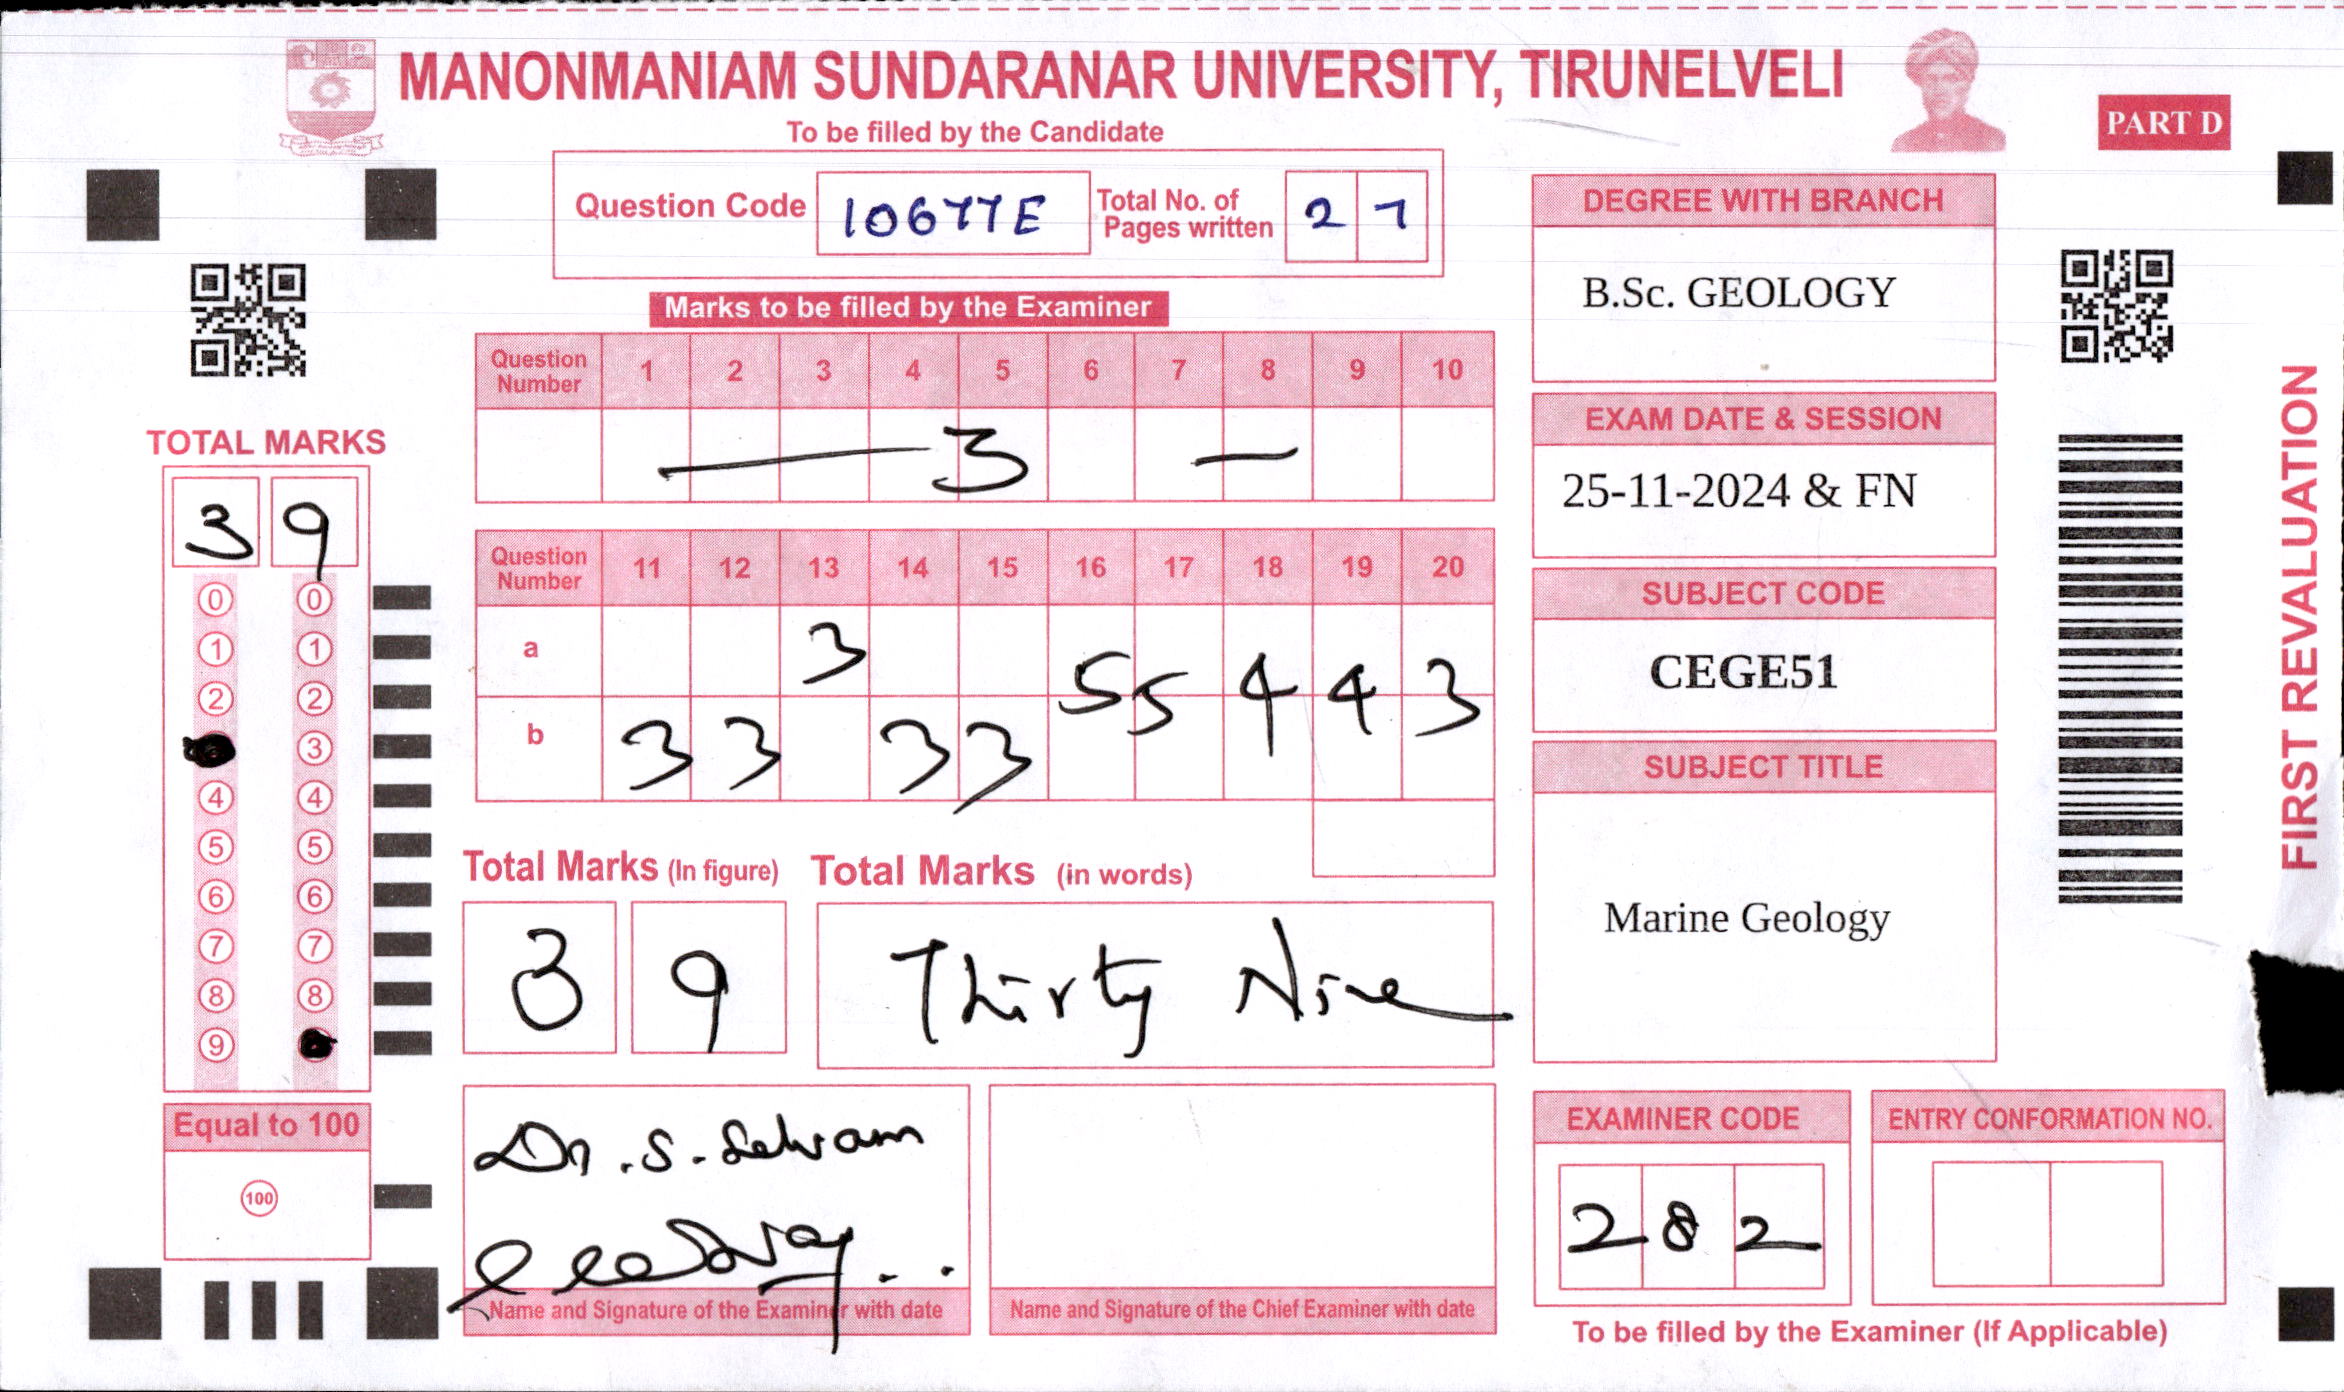 MANONMANIAM SUNDARANAR UNIVERSITY, TIRUNELVELI
To be filled by the Candidate
PART D
Question Code 10677E Total No. of Pages written 2 7
Marks to be filled by the Examiner
Question Number 1 2 3 4 5 6 7 8 9 10
— 3 —
Question Number 11 12 13 14 15 16 17 18 19 20
a 3 5 5 4 4 3
b 3 3 3 3
Total Marks (In figure) Total Marks (in words)
3 9 Thirty Nine
Dr. S. Selvam
Name and Signature of the Examiner with date
Name and Signature of the Chief Examiner with date
TOTAL MARKS
3 9
0 0
1 1
2 2
3
4 4
5 5
6 6
7 7
8 8
9
Equal to 100
100
DEGREE WITH BRANCH
B.Sc. GEOLOGY
EXAM DATE & SESSION
25-11-2024 & FN
SUBJECT CODE
CEGE51
SUBJECT TITLE
Marine Geology
EXAMINER CODE
2 8 2
ENTRY CONFORMATION NO.
To be filled by the Examiner (If Applicable)
FIRST REVALUATION